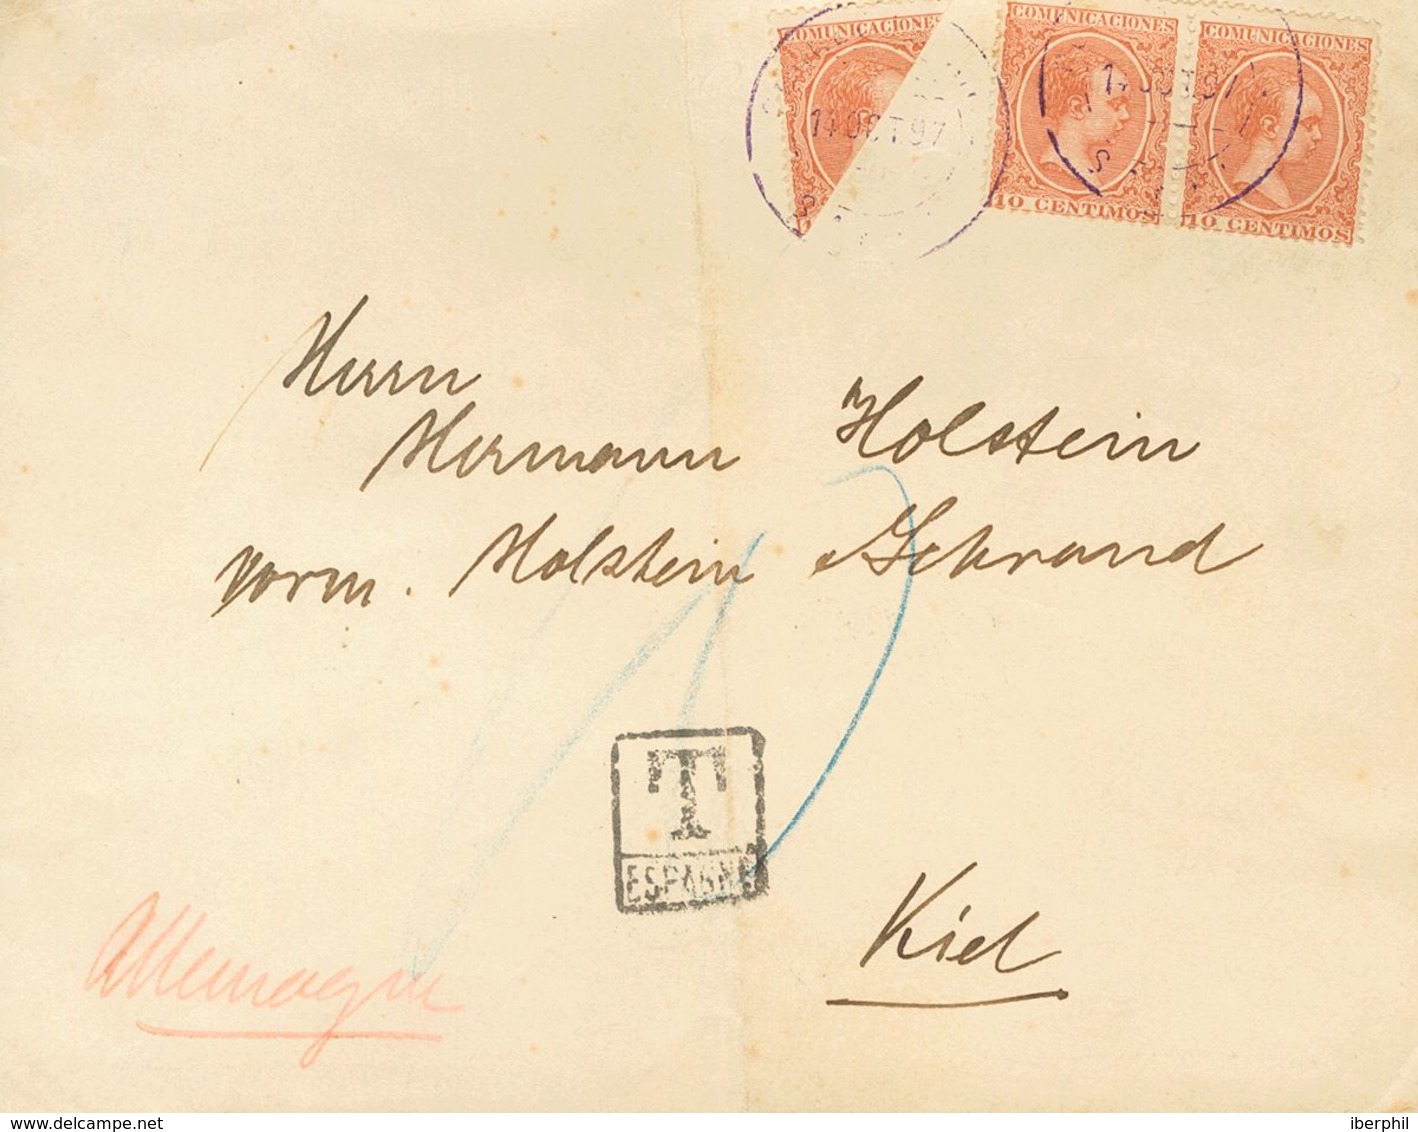 COMUNICACIONES COMUNICACIONES COMUNICACIONES
14 OCT 97 14 OCT 97
10 CENTIMOS 10 CENTIMOS
Herrn
Hermann Holstein
vorm. Holstein
Kiel
T
ESPAGNE
Allemagne
delcampe.net
iberphil